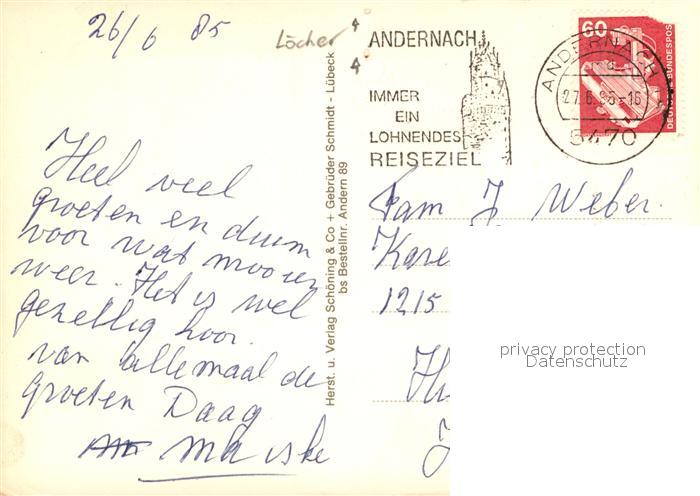 26/6 85
Löcher
Heel veel
groeten en duim
voor wat mooier
weer. Het is wel
gezellig hoor.
van allemaal de
groeten Daag
Herst. u. Verlag Schöning & Co + Gebrüder Schmidt - Lübeck
bs Bestellnr. Andern 89
ANDERNACH
IMMER
EIN
LOHNENDES
REISEZIEL
60
DEUTSCHE BUNDESPOST
ANDERNACH
5470
Fam J Weber.
Kare
1215
privacy protection
Datenschutz